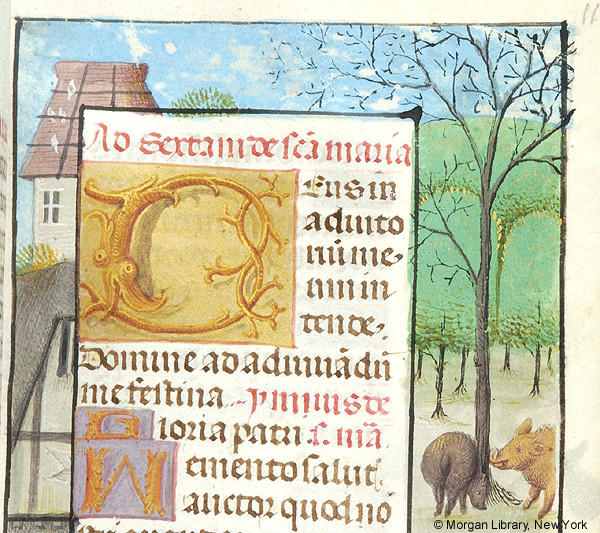 Ad Sextam de scā maria
Deus in
adiuto
riū me-
um in
tende.
Domine ad adiuuādū
me festina. ymnus de
Gloria patri s. mā
Memento salut
auctor quod nō
11
© Morgan Library, New York